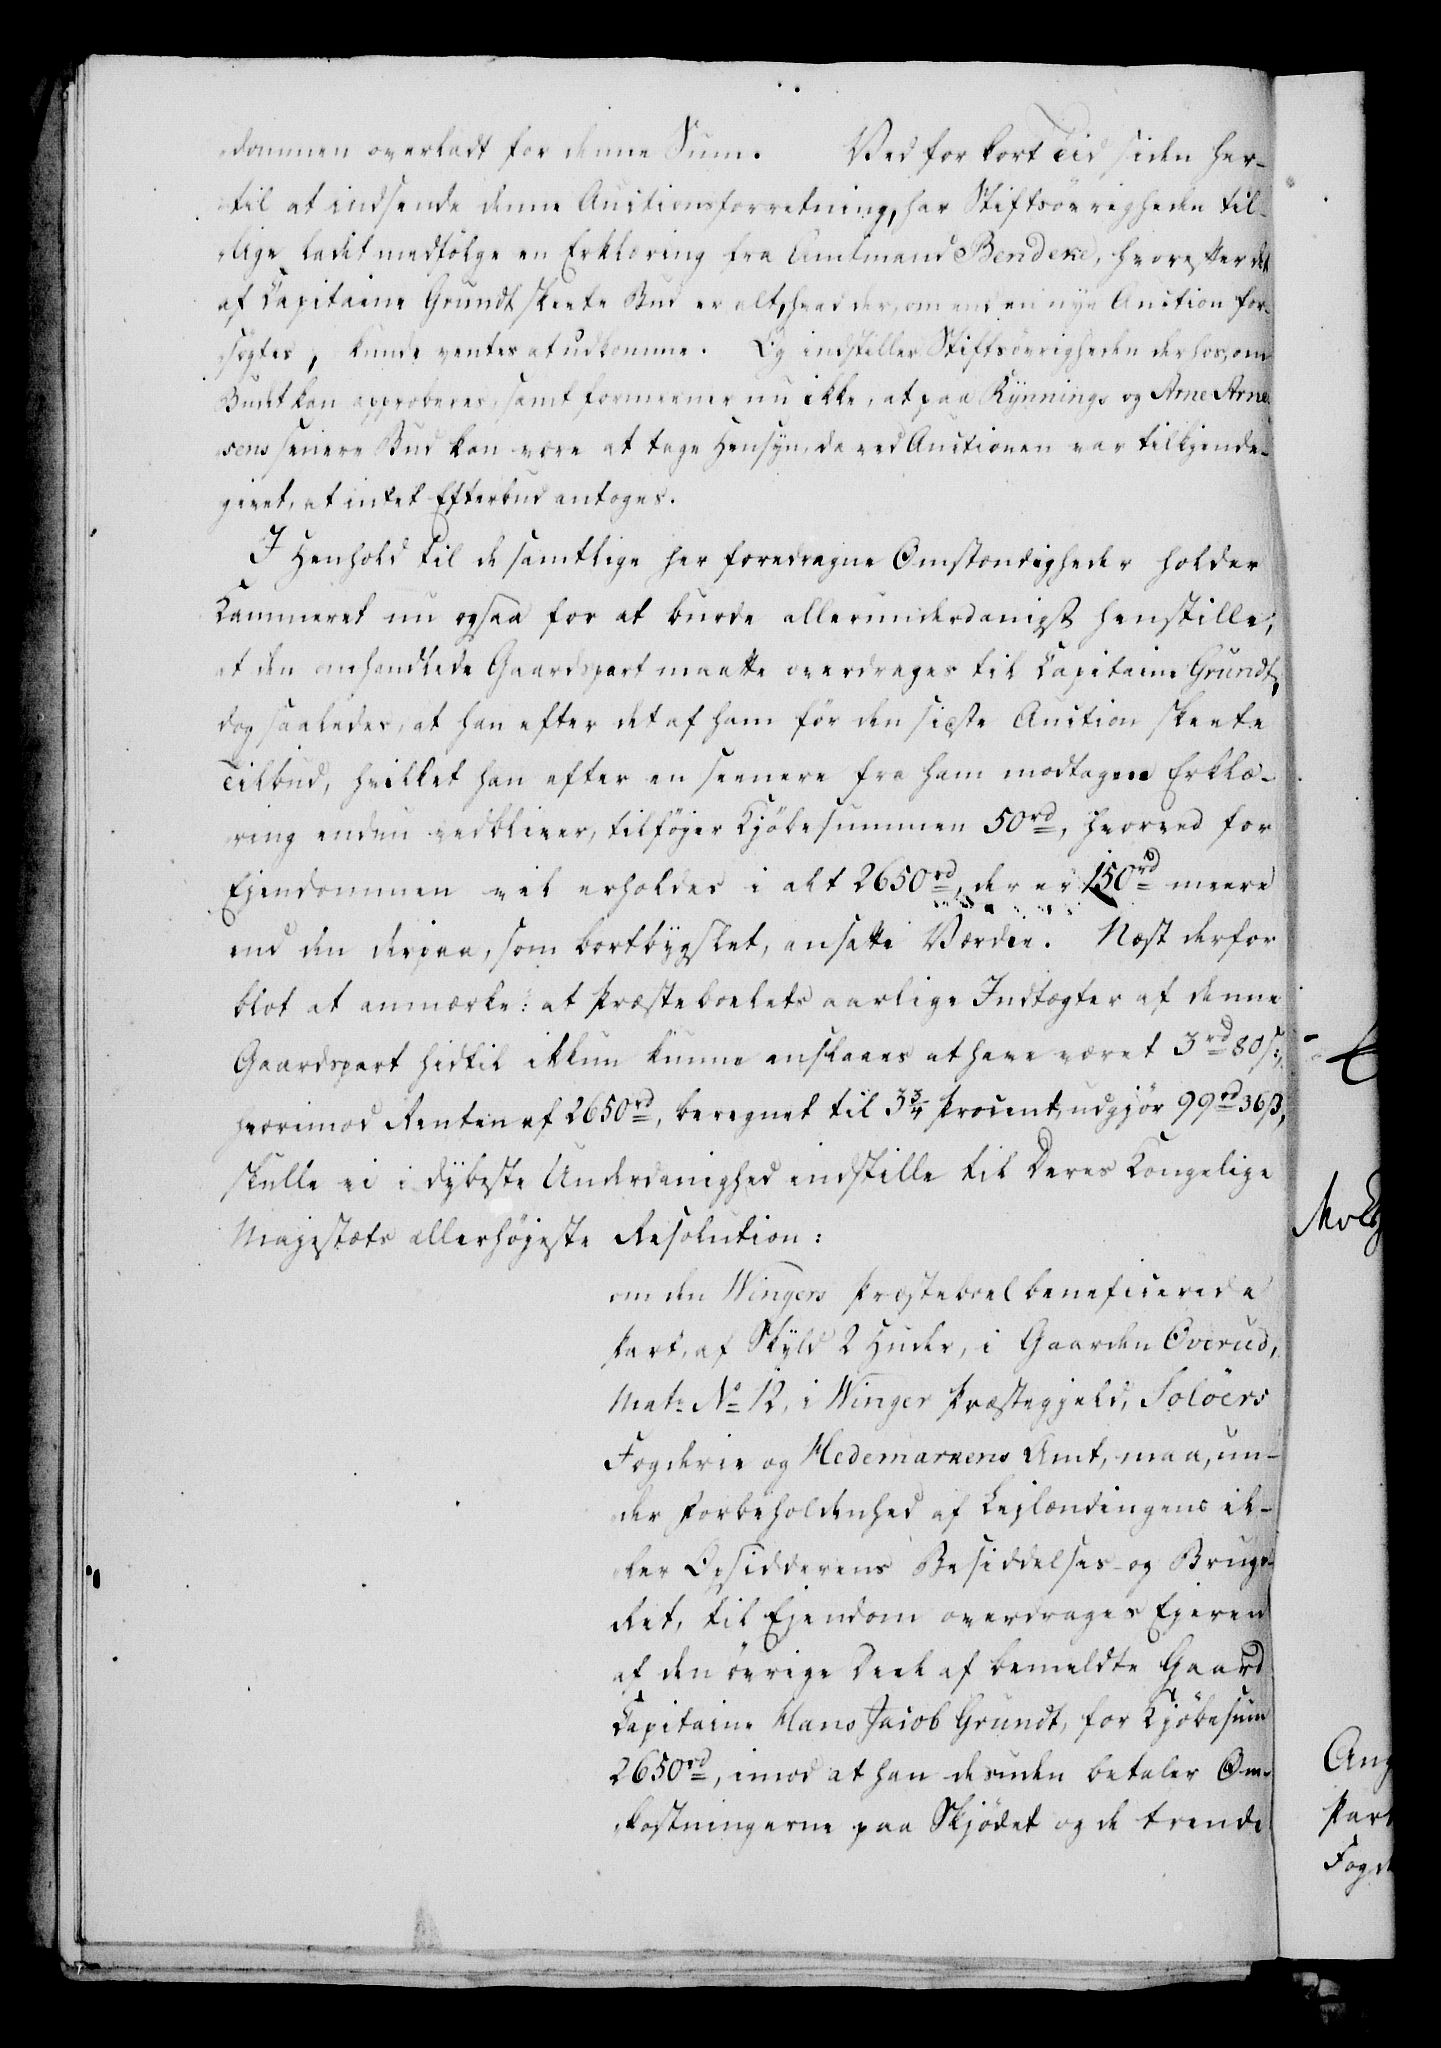 dommen overladt for denne Sum. Ved for kort Tid siden her-
til at indsende denne Auctionsforretning, har Stiftsövrigheden til-
lige ladet medfölge en Erklæring fra Amtmand Bendeke, hvorefter det
af Capitaine Grundt skeete Bud er alt, hvad der, om end en nye Auction for-
sögtes, kunde ventes at udkomme. Og indstiller Stiftsövrigheden derhos, om
Budet kan approberes, samt formeener nu ikke, at paa Kynnings og Arne Arne-
sens senere Bud kan være at tage Hensyn, da ved Auctionen var tilkjende-
givet, at intet Efterbud antoges.
I Henhold til de samtlige her foredragne Omstændigheder holder
Kammeret nu ogsaa for at burde allerunderdanigst henstille,
at den omhandlede Gaardspart maatte overdrages til Capitaine Grundt,
dog saaledes, at han efter det af ham för den sidste Auction skeete
Tilbud, hvilket han efter en seenere fra ham modtagen Erklæ-
ring endnu vedbliver, tilföjer Kjöbesummen 50rd, hvorved for
Ejendommen vil erholdes i alt 2650rd, der er 150rd meere
end den derpaa, som bortbygslet, ansatte Værdie. Næst derfor
blot at anmærke: at Præsteboelets aarlige Indtægter af denne
Gaardspart hidtil ikkun kunne anslaaes at have været 3rd 80s:,
hvorimod Renten af 2650rd, beregnet til 3¾ Procent, udgjör 99rd 36s,
skulle vi i dybeste Underdanighed indstille til Deres Kongelige
Majestæts allerhöjeste Resolution:
om den Wingers Præsteboel beneficerede
Part, af Skyld 2 Huder, i Gaarden Overud,
Matr No 12, i Winger Præstegjeld, Solöers
Fogderie og Hedemarkens Amt, maa, un-
der Forbeholdenhed af Lejlændingens el-
ler Opsidderens Besiddelses- og Brugs-
Ret, til Ejendom overdrages Ejeren
af den övrige Deel af bemeldte Gaard
Capitaine Hans Jacob Grundt, for Kjöbesum
2650rd, imod at han desuden betaler Om-
kostningerne paa Skjödet og de trende
Ang
Part
Fogd